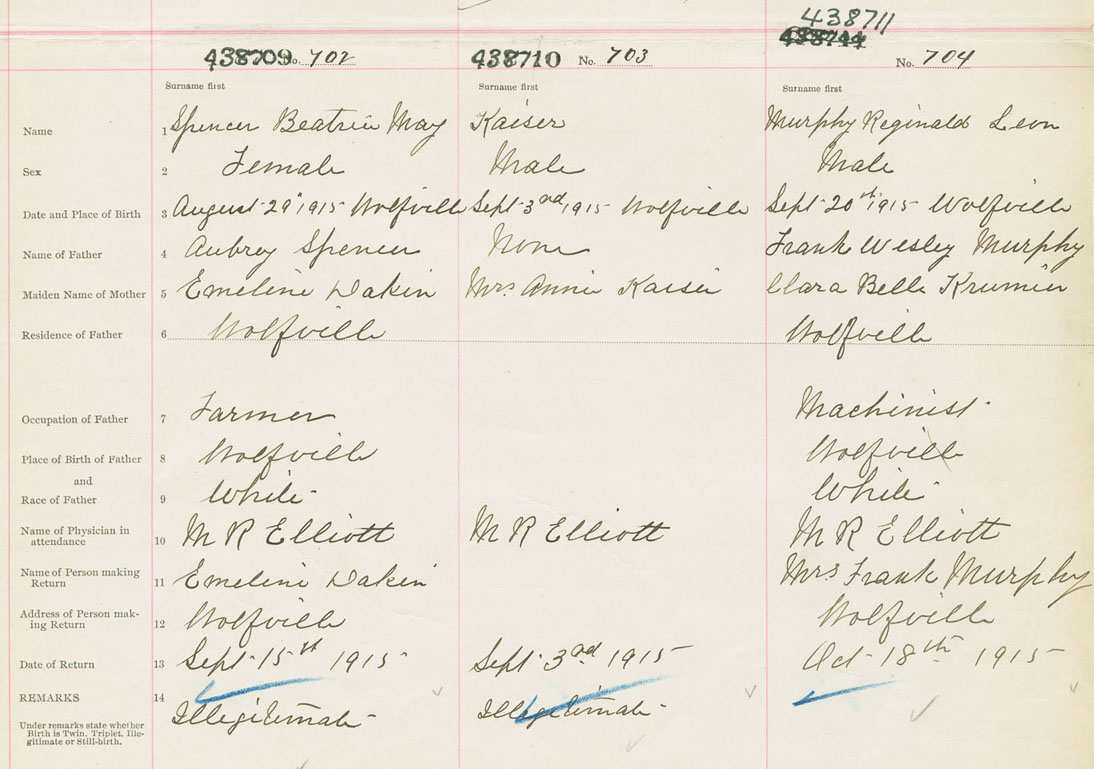 438711
438709 No. 702 438710 No. 703 438711 No. 704
Surname first Surname first Surname first
Name 1 Spencer Beatrice May Kaiser Murphy Reginald Leon
Sex 2 Female Male Male
Date and Place of Birth 3 August 29 1915 Wolfville Sept 3rd 1915 Wolfville Sept 20th 1915 Wolfville
Name of Father 4 Aubrey Spencer None Frank Wesley Murphy
Maiden Name of Mother 5 Emeline Dakin Mrs Annie Kaiser Clara Belle
Residence of Father 6 Wolfville Wolfville
Occupation of Father 7 Farmer Machinist
Place of Birth of Father 8 Wolfville Wolfville
and
Race of Father 9 White White
Name of Physician in
attendance 10 M R Elliott M R Elliott M R Elliott
Name of Person making
Return 11 Emeline Dakin Mrs Frank Murphy
Address of Person mak-
ing Return 12 Wolfville Wolfville
Date of Return 13 Sept 15th 1915 Sept 3rd 1915 Oct 18th 1915
REMARKS 14 Illegitimate Illegitimate
Under remarks state whether
Birth is Twin, Triplet, Ille-
gitimate or Still-birth.